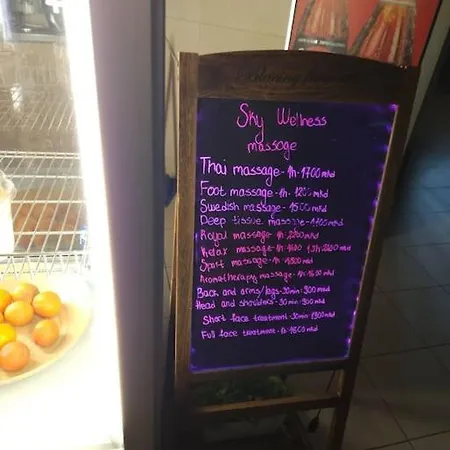 Sky Wellness
massage
Thai massage - 1h - 1700 mkd
Foot massage - 1h - 1200 mkd
Swedish massage - 1500 mkd
Deep tissue massage - 1700 mkd
Royal massage - 1h - 2200 mkd
Relax massage - 1h
Sport massage - 1h - 1800 mkd
Aromatherapy massage - 1h - 1600 mkd
Back and arms/legs - 30 min - 900 mkd
Head and shoulders - 30 min - 900 mkd
Short face treatment - 30 min - 1300 mkd
Full face treatment - 1h - 1800 mkd